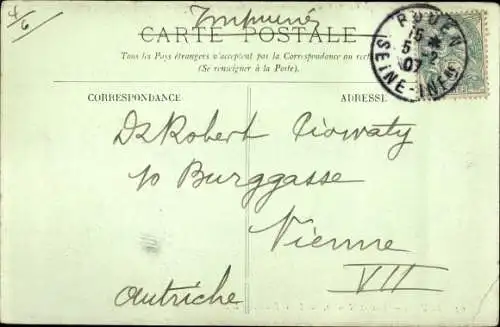 4/6
Imprimé
CARTE POSTALE
Tous les Pays étrangers n'acceptent pas la Correspondance au recto
(Se renseigner à la Poste).
CORRESPONDANCE
ADRESSE
ROUEN
15
5 - 2
07
SEINE-INFRE
Dr Robert
10 Burggasse
Vienne
VII
Autriche